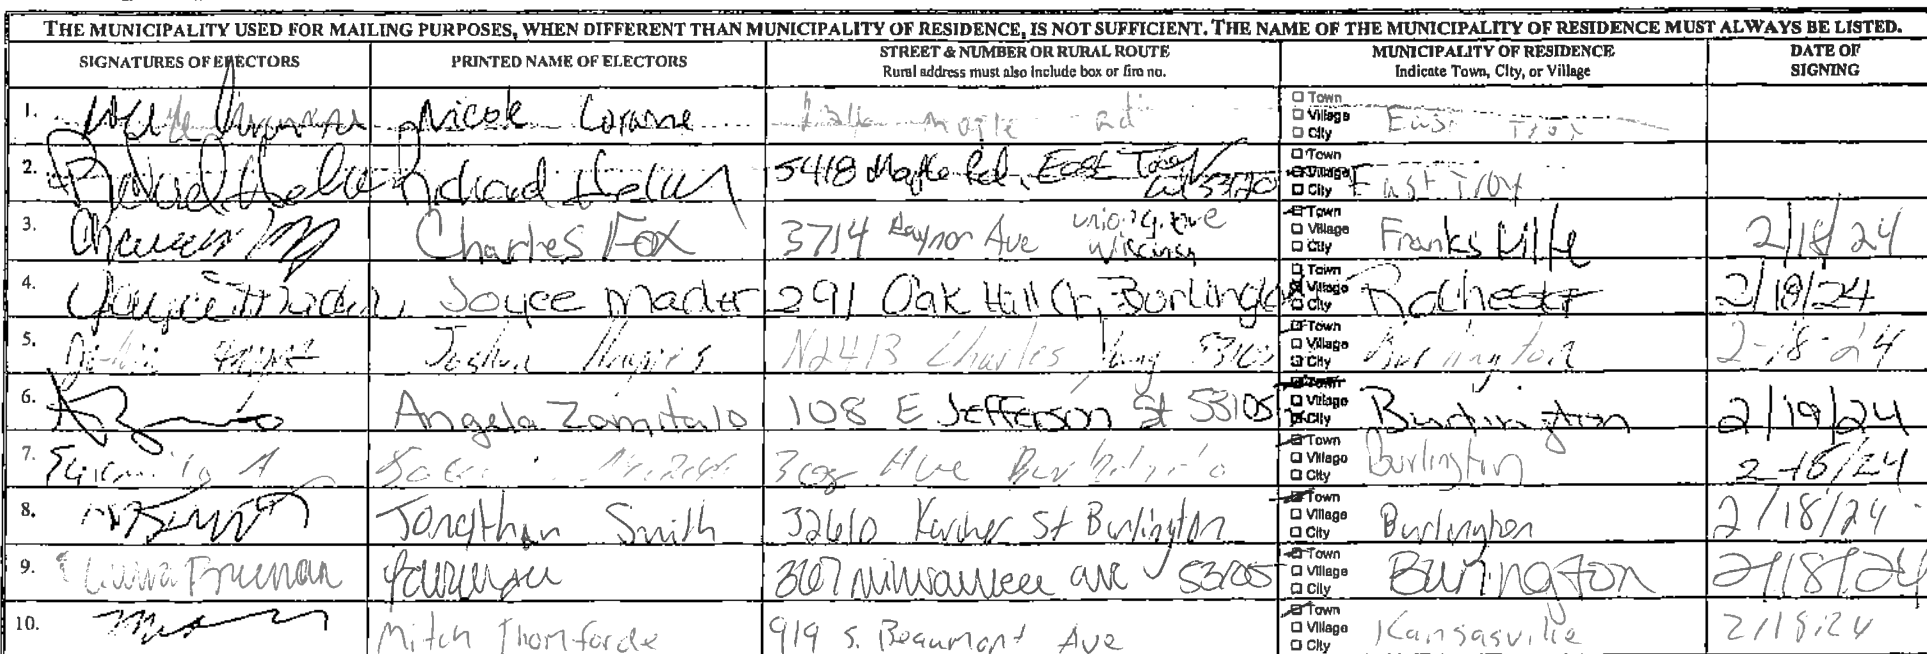 THE MUNICIPALITY USED FOR MAILING PURPOSES, WHEN DIFFERENT THAN MUNICIPALITY OF RESIDENCE, IS NOT SUFFICIENT. THE NAME OF THE MUNICIPALITY OF RESIDENCE MUST ALWAYS BE LISTED.
SIGNATURES OF ELECTORS PRINTED NAME OF ELECTORS STREET & NUMBER OR RURAL ROUTE MUNICIPALITY OF RESIDENCE DATE OF
Rural address must also include box or fire no. Indicate Town, City, or Village SIGNING
1. Nicole Rd Town Village City East Troy
2. Richard 5418 Maple Rd, East Troy WI 53120 Town Village City East Troy
3. Charles Fox 3714 Raynor Ave Union Grove Wisconsin Town Village City Franksville 2/18/24
4. Joyce Mader Joyce Mader 291 Oak Hill Cr, Burlington Town Village City Rochester 2/18/24
5. Joshua N2413 Charles 53105 Town Village City Burlington 2-18-24
6. Angela Zomitalo 108 E Jefferson St 53105 Town Village City Burlington 2/19/24
7. Ave Town Village City Burlington 2-18/24
8. Jonathan Smith 32610 St Burlington Town Village City Burlington 2/18/24
9. 3167 Milwaukee ave 53105 Town Village City Burlington 2/18/24
10. Mitch Thomforde 919 S. Beaumont Ave Town Village City Kansasville 2/18/24